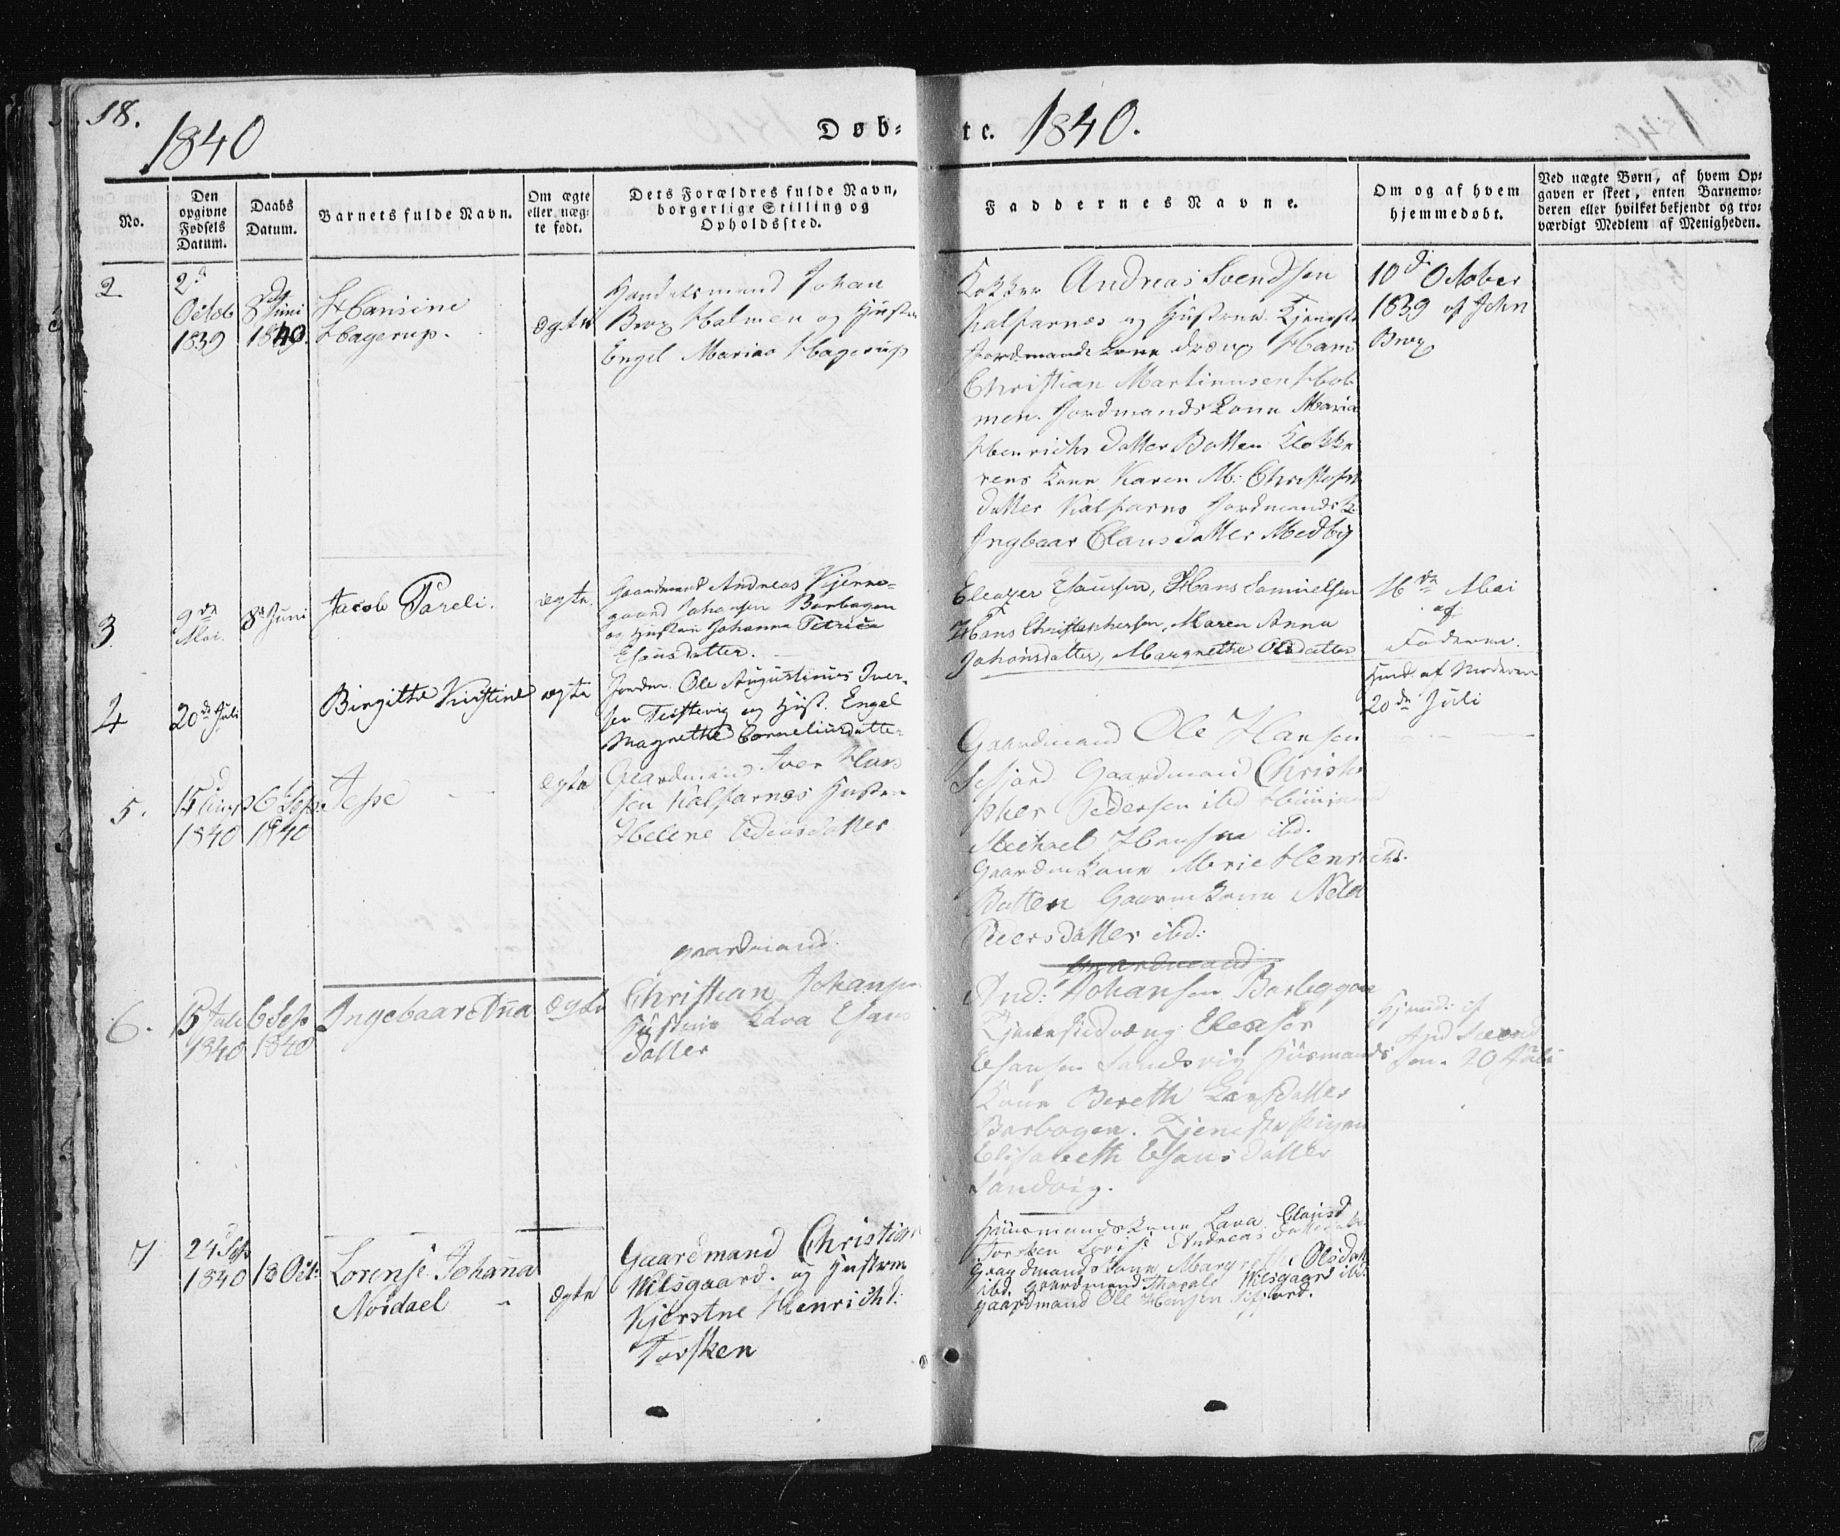 18.
1840
Døb-
te. 1840.
No.
Den opgivne Fødsels Datum.
Daabs Datum.
Barnets fulde Navn.
Om ægte eller uægte født.
Dets Forældres fulde Navn, borgerlige Stilling og Opholdssted.
Faddernes Navne.
Om og af hvem hjemmedøbt.
Ved uægte Børn, af hvem Opgaven er skeet, enten Barnemoderen eller hvilket bekjendt og troværdigt Medlem af Menigheden.
2.
2d
Octob
1839
8de Juni
1840
Hansine
Hagerup.
ægte
Handelsmand Johan
Brox Holmen og Hustru
Engel Marina Hagerup
Andreas Svendsen
Kalfarnes og Hustrue
Hans
Christian Martinusen Hol-
men. Jordmands Kone Maria
Henrichs Datter Botten Klokke
rens Kone Karen M: Christophe
datter Kalfarnes Jordmands K:
Ingbaar Clausdatter Medby
10d October
1839 af John
Brox
3
9de
Mai.
8de Juni
Jacob Pareli.
ægte.
Gaardmand Andreas
Johansen Borbagen
og Hustru Johanna Petrica
Esausdatter.
Eleazer Esausen, Hans Samuelsen
Hans Christophersen, Maren Anna
Johonsdatter, Margrethe Olsdatter
16de Mai
af
Faderen.
4
20de Juli
Birgitte Kirstine
ægte
Jordm. Ole Augustinus Iver-
sen Teistevig og Hust. Engel
Magrethe Corneliusdatter
Hmd. af Moderen
20de Juli
5.
15
1840
6 Sept
1840
Jesse
ægte
Gaardmand Iver Hans
sen Kalfarnes Hustru
Helene Pedersdatter
Gaardmand Ole Hansen
Sifjord. Gaardmand Christo
pher Pedersen ibd
Michael Hansen ibd.
Gaardm Kone Marie Henrichs.
Botten Gaarm Kone
Peersdatter ibd:
6.
15 Juli
1840
6 Sep
1840
Ingebaar Ana
ægte
gaardmand.
Christian Johans
Hustrue Lava Esaus
datter
gaardmand
And: Johansen Borbagen
Eleasor
Esausen Sandsvig Huusmands
Kone Bereth Larsdatter
Borbagen. Tjenestepigen
Elisabeth Esausdatter
Sandvig.
Hjemd: af
And Svend
sen. 20 Juli
7
24 Sep
1840
18 Oct:
Lorense Johana
Nordael
ægte
Gaardmand Christian
Nilsgaard. og Hustrue
Kjerstne Henricht:
Torsken
Huusmandskone Lava Clausd
Torsken
Gaardmandskone Margrethe Olsdat
ibd. gaardmand Nilsgaard ibd.
gaardmand Ole Hansen Sifjord.